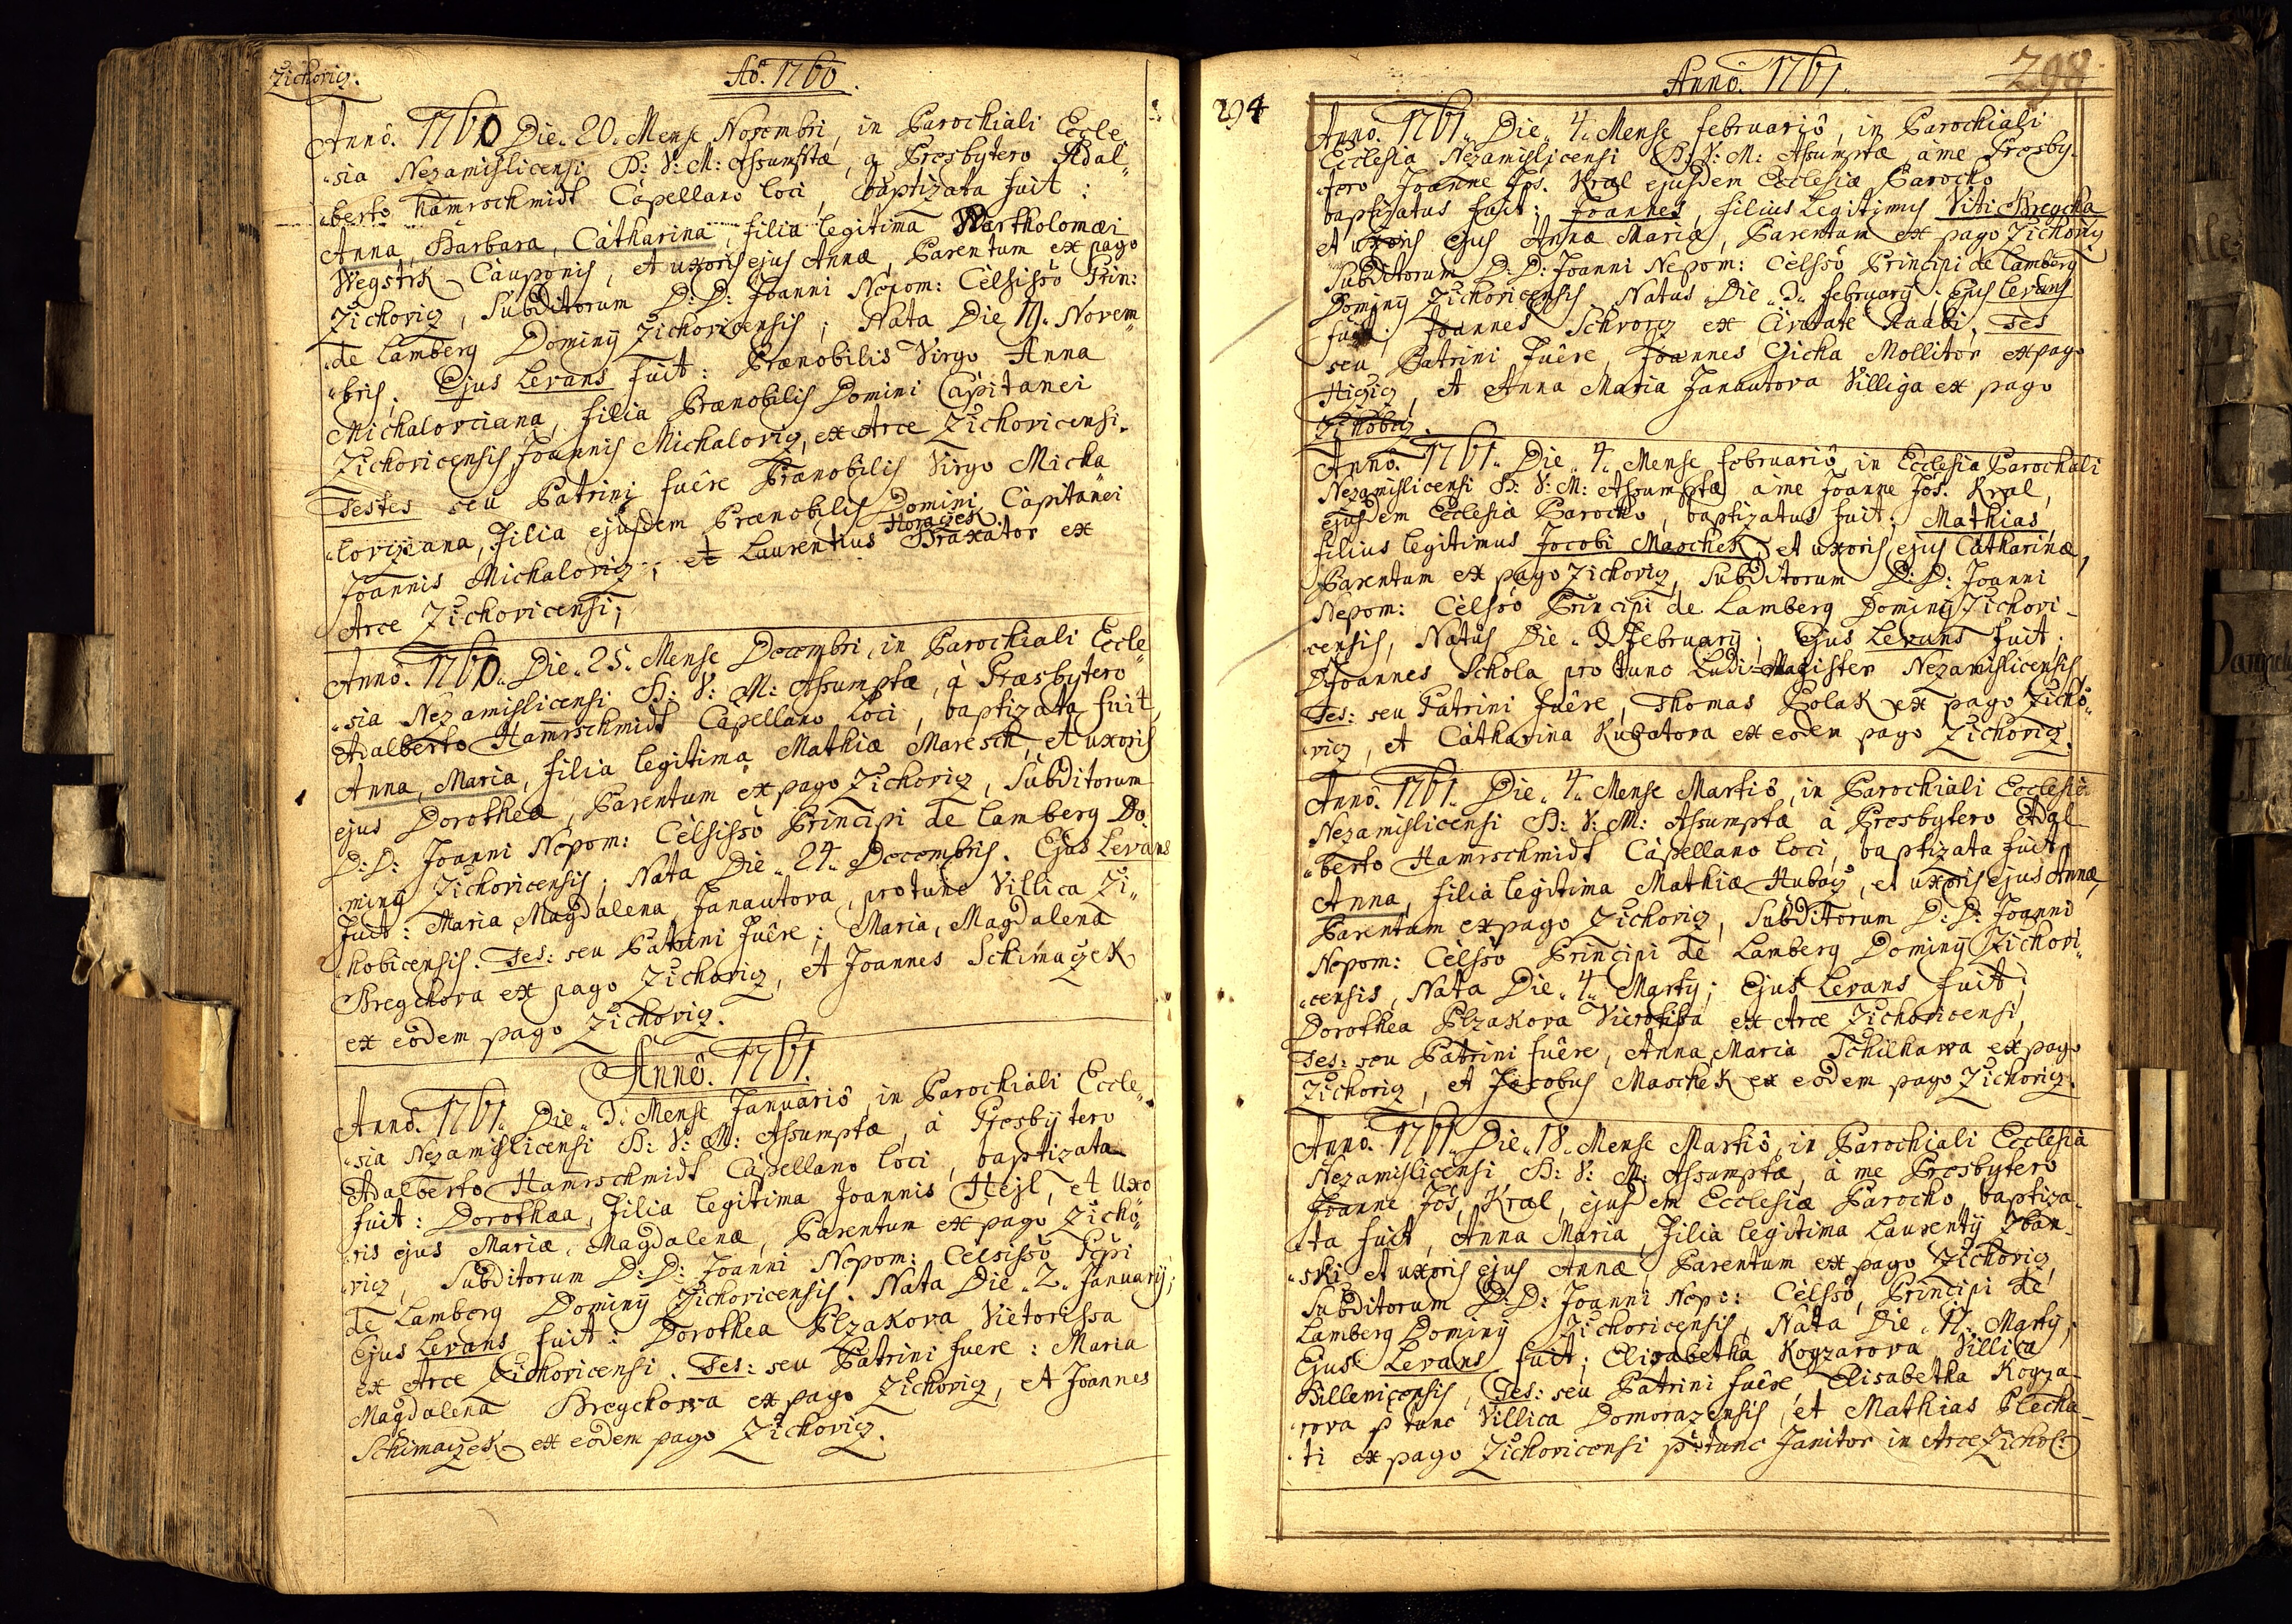 Zichoviz.
Aō. 1760.
Anno. 1760 Die. 20. Mense Novembri, in Parochiali Eccle„
„sia Nezamislicensi B: V: M: Assumptæ, a Presbytero Adal„
„berto Hamrschmidt Capellano loci, baptizata fuit:
Anna, Barbara, Catharina, filia legitima Bartholomæi
Wegstrk Cauponis, et uxoris ejus Annæ, Parentum ex pago
Zichoviz, Subditorum D: D: Joanni Nepom: Celsisso Prin:
„de Lamberg Dominÿ Zichovicensis; Nata Die 19. Novem„
„bris. Ejus Levans fuit: Prænobilis Virgo Anna
Michalovciana, filia Prænobilis Domini Capitanei
Zichovicensis Joannis Michaloviz, ex Arce Zichovicensi.
Testes seu Patrini fuêre Prænobilis Virgo Micha
„loviziana, Filia ejusdem Prænobilis Domini Capitanei
Joannis Michaloviz; et Laurentius Horaczek Braxator ex
Arce Zichovicensi;
Anno. 1760. Die. 25. Mense Decembri, in Parochiali Eccle„
„sia Nezamislicensi B: V: M: Assumptæ, à Præsbytero
Adalberto Hamrschmidt Capellano loci, baptizata fuit,
Anna, Maria, filia legitima Mathiæ Maresch, et uxoris
ejus Dorotheæ, Parentum ex pago Zichoviz, Subditorum
D: D: Joanni Nepom: Celsisso Principi de Lamberg Do
„minÿ Zichovicensis; Nata Die „24„ Decembris. Ejus Levans
fuit: Maria Magdalena Janautova, pro tunc Villica Zi„
„hobicensis. Tes: seu Patrini fuêre; Maria, Magdalena
Bregchova ex pago Zichoviz, et Joannes Schimaczek
ex eodem pago Zichoviz.
Anno. 1761.
Anno. 1761. Die „3. Mense Januariô, in Parochiali Eccle„
„sia Nezamislicensi B: V: M: Assumptæ, à Presbÿtero
Adalberto Hamrschmidt Capellano loci, baptizata
fuit: Dorothæa, Filia legitima Joannis Hejl, et Uxo
„ris ejus Mariæ, Magdalenæ, Parentum ex pago Zicho„
„viz, Subditorum D: D: Joanni Nepom: Celsisso Pcipi
de Lamberg Dominÿ Zichovicensis. Nata Die „2„ Januarÿ;
Ejus Levans fuit: Dorothea Plzakova Vietorissa
ex Arce Zichovicensi. Tes: seu Patrini fuere: Maria
Magdalena Bregchowa ex pago Zichoviz, et Joannes
Schimaczek ex eodem pago Zichoviz.
294
Anno. 1761.
298
Anno. 1761„ Die„ 4„ Mense februariô, in Parochiali
Ecclesia Nezamislicensi B: V: M: Assumptæ, à me Presby„
„tero Joanne Jos. Kral ejusdem Ecclesiæ Parocho
baptizatus fuit: Joannes, filius legitimus Viti Bregcha
et uxoris ejus Annæ Mariæ, Parentum ex pago Zichoviz
Subditorum D: D: Joanni Nepom: Celsso Principi de Lamberg
Dominÿ Zichovicensis. Natus Die „3„ februarÿ: Ejus Levans
fuit. Joannes Schvorz ex Civitate Raabi, Tes
seu Patrini fuêre, Joannes Czicha Mollitor ex pago
Hiziz, et Anna Maria Janautova Villiga ex pago
Zihobiz.
Anno. 1761„ Die „4„ Mense februariô, in Ecclesia Parochiali
Nezamislicensi B: V: M: Assumptæ, à me Joanne Jos. Kral,
ejusdem Ecclesiæ Parocho, baptizatus fuit: Mathias,
filius legitimus Jacobi Maschek, et uxoris ejus Catharinæ,
Parentum ex pago Zichoviz, Subditorum D: D: Joanni
Nepom: Celsso Principi de Lamberg Dominÿ Zichovi-
censis, Natus Die „3 februarÿ; Ejus Levans fuit:
D Joannes Schola pro tunc Ludi-Magister Nezamislicensis,
Tes: seu Patrini fuêre, Thomas Polak ex pago Zicho„
„viz, et Catharina Kubatova ex eodem pago Zichoviz.
Anno. 1761„ Die „4„ Mense Martiô, in Parochiali Ecclesia
Nezamislicensi B: V: M: Assumptæ à Presbytero Adal
„berto Hamrschmidt Capellano loci, baptizata fuit,
Anna, filia legitima Mathiæ Hubacz, et uxoris ejus Annæ,
Parentum ex pago Zichoviz, Subditorum D: D: Joanni
Nepom: Celsso Principi de Lamberg Dominÿ Zichovi„
„censis, Nata Die „4„ Martÿ; Ejus Levans fuit;
Dorothea Plzakova Vietorissa ex Arce Zichovicensi,
Tes: seu Patrini fuêre, Anna Maria Tchilhawa ex pago
Zichoviz, et Jacobus Maschek ex eodem pago Zichoviz.
Anno. 1761„ Die „18„ Mense Martiô, in Parochiali Ecclesia
Nezamislicensi, B: V: M: Assumptæ, à me Presbytero
Joanne Jos, Kral, ejusdem Ecclesiæ Parocho, baptiza„
„ta fuit, Anna Maria, Filia legitima Laurentÿ Zban„
„ski et uxoris ejus Annæ, Parentum ex pago Zichoviz,
Subditorum D: D: Joanni Nepo: Celsso, Principi de
Lamberg Dominÿ Zichovicensis, Nata Die „17„ Martÿ;
Ejus Levans fuit; Elisabetha Kogzarova Villica
Billenicensis, Tes: seu Patrini fuêre, Elisabetha Kogza-
„rova p tunc Villica Domorazensis, et Mathias Plecha-
„ti ex pago Zichovicensi p: tunc Janitor in Arce Zichov: